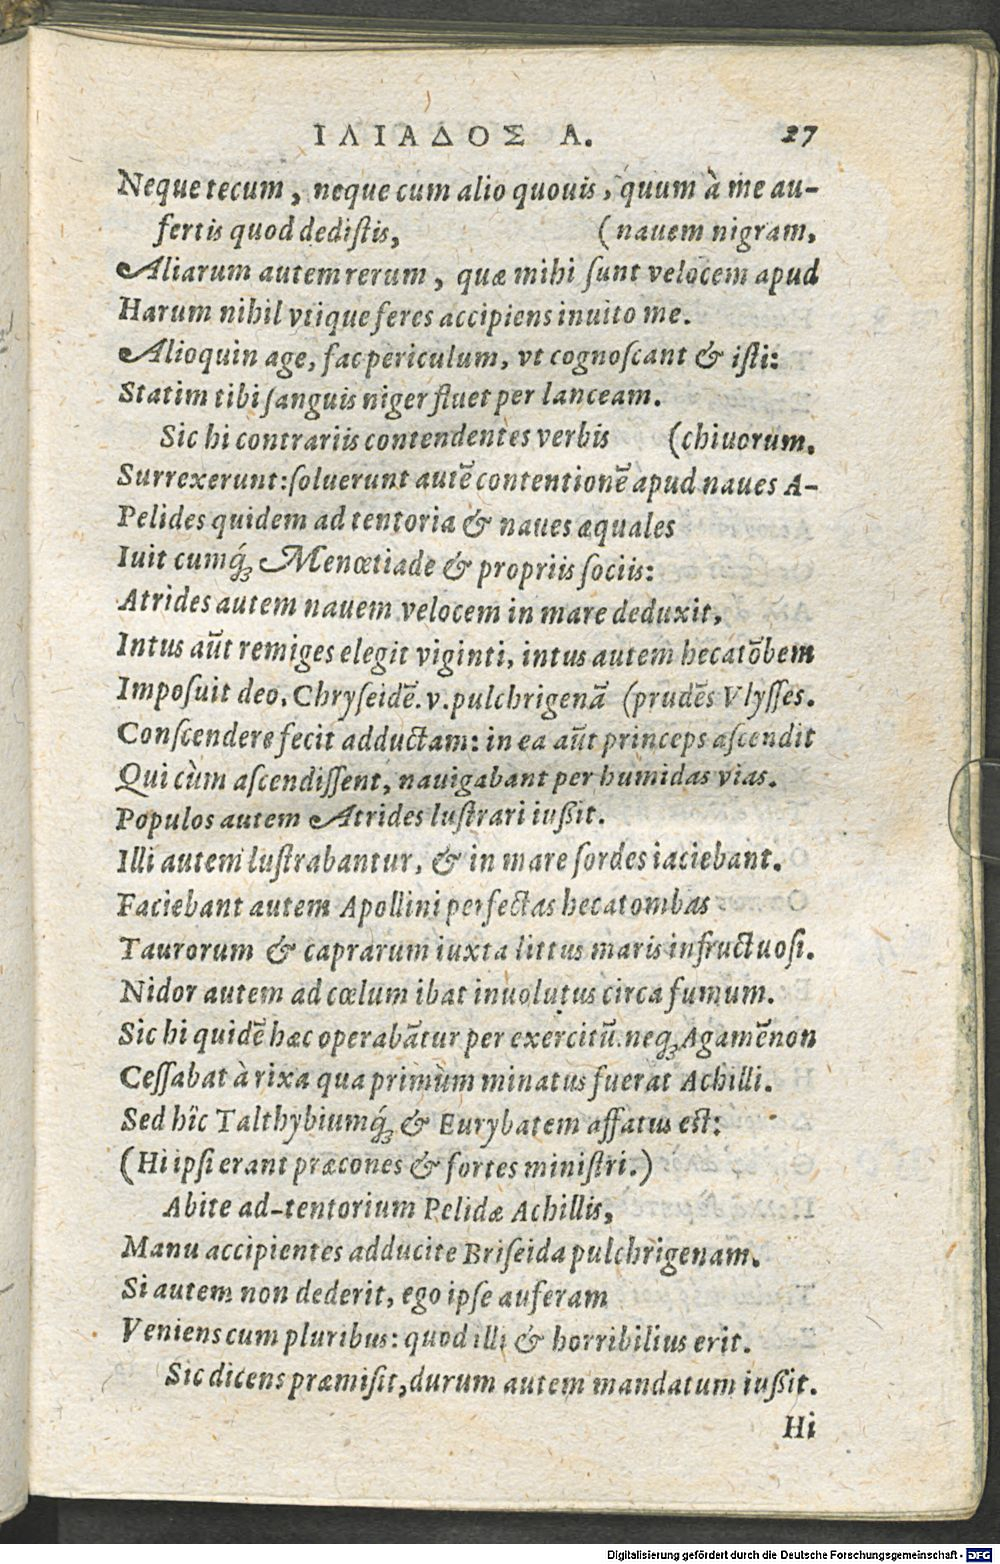 ΙΛΙΑΔΟΣ Α. 27
Neque tecum, neque cum alio quouis, quum à me au-
fertis quod dedistis, (nauem nigram,
Aliarum autem rerum, quæ mihi sunt velocem apud
Harum nihil vtique feres accipiens inuito me.
Alioquin age, fac periculum, vt cognoscant & isti:
Statim tibi sanguis niger fluet per lanceam.
Sic hi contrariis contendentes verbis (chiuorum.
Surrexerunt: soluerunt autē contentionē apud naues A-
Pelides quidem ad tentoria & naues æquales
Iuit cumq́; Menœtiade & propriis sociis:
Atrides autem nauem velocem in mare deduxit,
Intus aūt remiges elegit viginti, intus autem hecatōbem
Imposuit deo. Chryseidē. v. pulchrigenā (prudēs Vlysses.
Conscendere fecit adductam: in ea aūt princeps ascendit
Qui cùm ascendissent, nauigabant per humidas vias.
Populos autem Atrides lustrari iußit.
Illi autem lustrabantur, & in mare sordes iaciebant.
Faciebant autem Apollini perfectas hecatombas
Taurorum & caprarum iuxta littus maris infructuosi.
Nidor autem ad cœlum ibat inuolutus circa fumum.
Sic hi quidē hæc operabātur per exercitū. neq; Agamēnon
Cessabat à rixa qua primùm minatus fuerat Achilli.
Sed hîc Talthybiumq́; & Eurybatem affatus est:
(Hi ipsi erant præcones & fortes ministri.)
Abite ad-tentorium Pelidæ Achillis,
Manu accipientes adducite Briseida pulchrigenam.
Si autem non dederit, ego ipse auferam
Veniens cum pluribus: quod illi & horribilius erit.
Sic dicens præmisit, durum autem mandatum iußit.
Hi
Digitalisierung gefördert durch die Deutsche Forschungsgemeinschaft - DFG